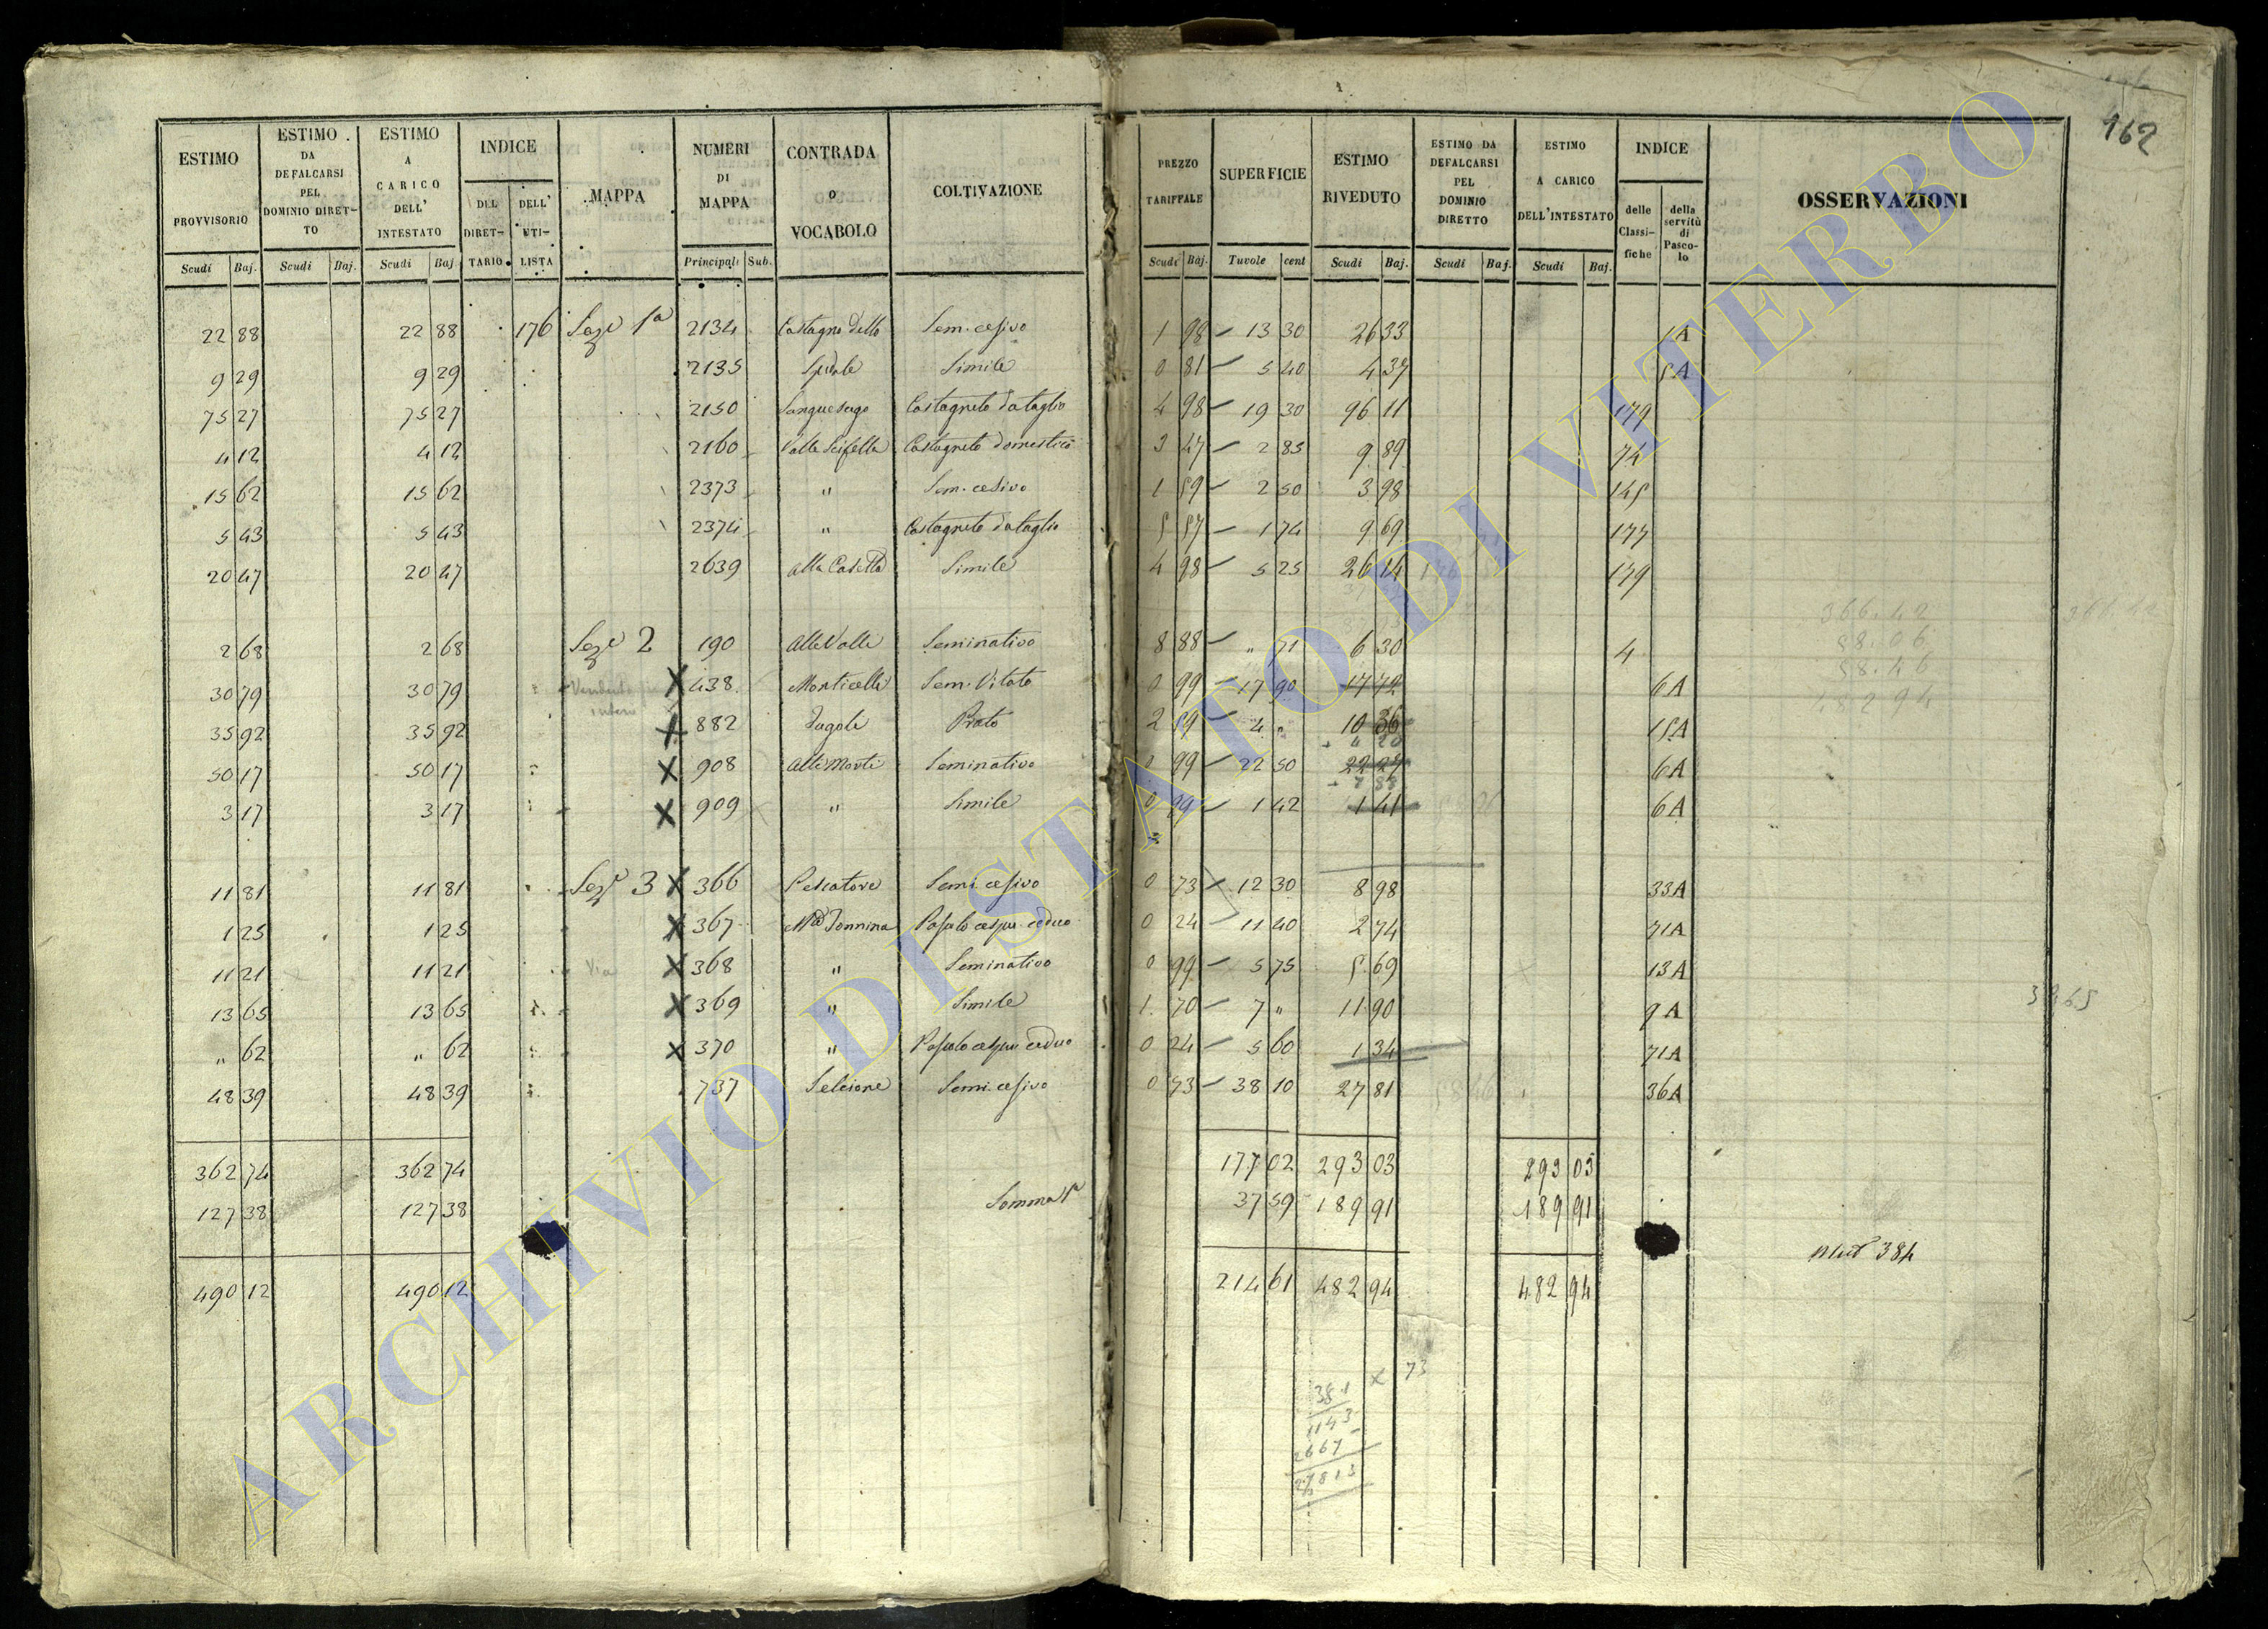 162
ESTIMO PROVVISORIO
ESTIMO DA DEFALCARSI PEL DOMINIO DIRETTO
ESTIMO A CARICO DELL' INTESTATO
INDICE
DEL DIRETTARIO
DELL' UTILISTA
MAPPA
NUMERI DI MAPPA
CONTRADA o VOCABOLO
COLTIVAZIONE
PREZZO TARIFFALE
SUPERFICIE
ESTIMO RIVEDUTO
ESTIMO DA DEFALCARSI PEL DOMINIO DIRETTO
ESTIMO A CARICO DELL'INTESTATO
INDICE
delle Classifiche
della servitù di Pascolo
OSSERVAZIONI
Scudi Baj. Scudi Baj. Scudi Baj. Principali Sub. Scudi Baj. Tavole cent Scudi Baj. Scudi Baj. Scudi Baj.
22 88 22 88 176 Sez. 1a 2134 Sem. cesivo 1 98 13 30 26 33 1A
9 29 9 29 2135 Simile 0 81 5 40 4 37 5A
75 27 75 27 2150 Sanguesugo Castagneto da taglio 4 98 19 30 96 11 179
4 12 4 12 2160 Valle Scifella Castagneto domestico 3 47 2 85 9 89 74
15 62 15 62 2373 " Sem. cesivo 1 59 2 50 3 98 145
5 43 5 43 2374 " Castagneto da taglio 5 57 1 74 9 69 177
20 47 20 47 2639 alla Casetta Simile 4 98 5 25 26 14 179
2 68 2 68 Sez. 2 190 alle Valle Seminativo 8 88 " 71 6 30 4
30 79 30 79 X 438 Monticelli Sem. Vitato 0 99 17 90 17 72 6A
35 92 35 92 X 882 Prato 2 59 4 " 10 36 15A
50 17 50 17 X 908 alli Monti Seminativo 0 99 22 50 22 27 6A
3 17 3 17 X 909 " Simile 0 99 1 42 1 41 6A
11 81 11 81 Sez. 3 X 366 Pescatore Semi. cesivo 0 73 12 30 8 98 33A
1 25 1 25 X 367 Pascolo cespu. ceduo 0 24 11 40 2 74 71A
11 21 11 21 Via X 368 " Seminativo 0 99 5 75 5 69 13A
13 65 13 65 X 369 " Simile 1 70 7 " 11 90 9A
" 62 " 62 X 370 " Pascolo cespu ceduo 0 24 5 60 1 34 71A
48 39 48 39 737 Selcione Semi. cesivo 0 73 38 10 27 81 36A
362 74 362 74 177 02 293 03 293 03
127 38 127 38 Somma 1a 37 59 189 91 189 91
490 12 490 12 214 61 482 94 482 94
366.42
88.06
482 94
381 x 73
1143
2667
27813
ARCHIVIO DI STATO DI VITERBO